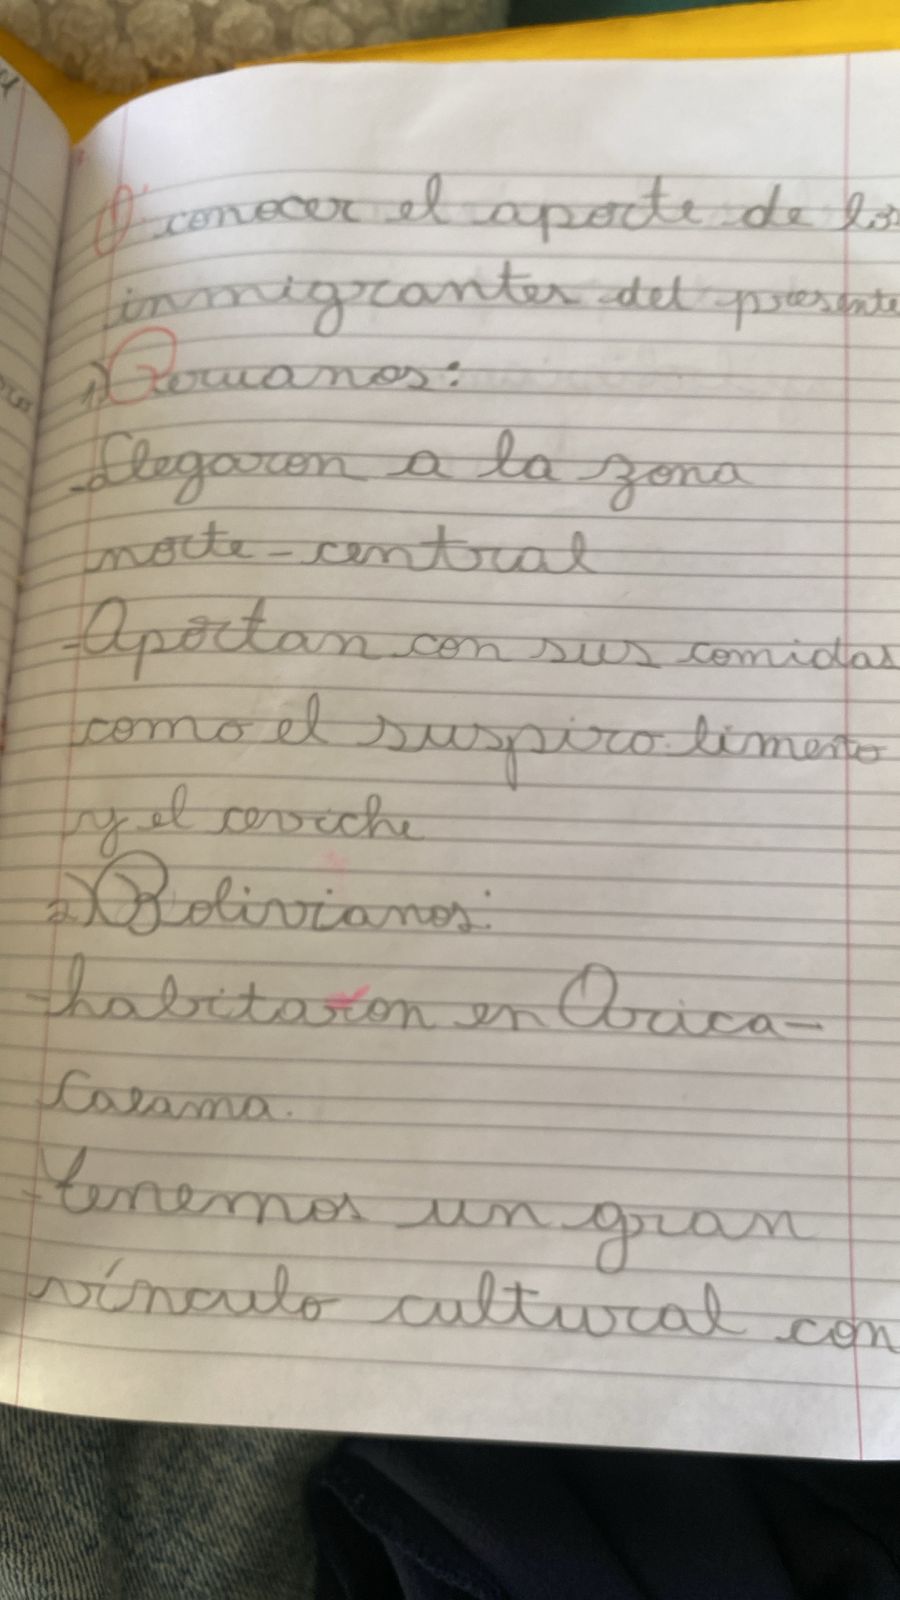 O' conocer el aporte de los
inmigrantes del presente
1) Peruanos:
-llegaron a la zona
norte-central
-Aportan con sus comidas
como el suspiro limeño
y el ceviche
2) Bolivianos:
-habitaron en Arica-
Calama.
-tenemos un gran
vínculo cultural con